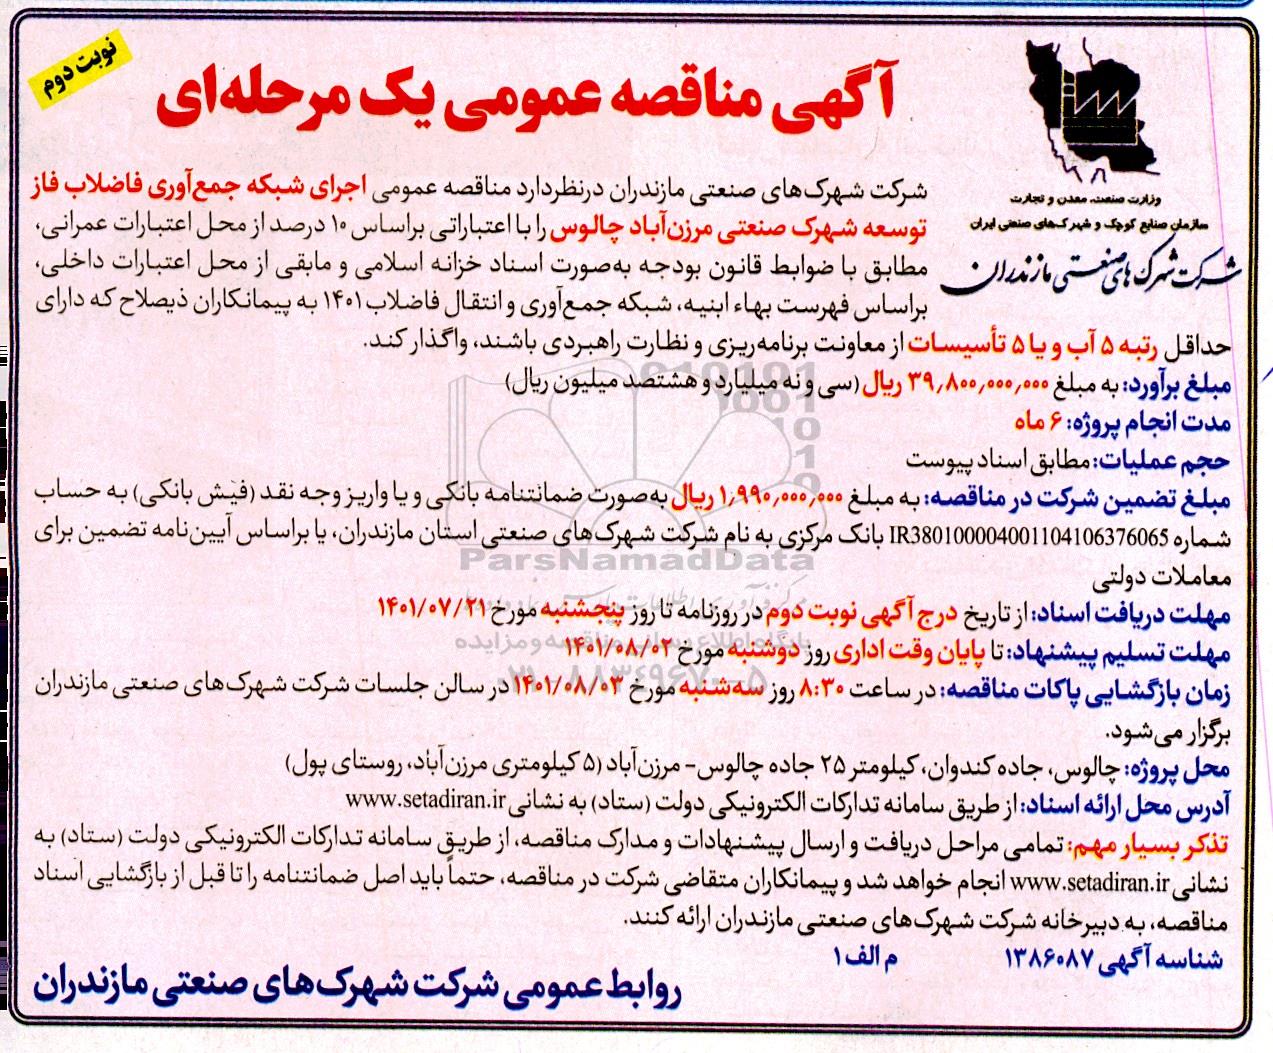 نوبت دوم
آگهی مناقصه عمومی یک مرحله‌ای
وزارت صنعت، معدن و تجارت
سازمان صنایع کوچک و شهرک‌های صنعتی ایران
شرکت شهرک‌های صنعتی مازندران
شرکت شهرک‌های صنعتی مازندران درنظردارد مناقصه عمومی اجرای شبکه جمع‌آوری فاضلاب فاز
توسعه شهرک صنعتی مرزن‌آباد چالوس را با اعتباراتی براساس ۱۰ درصد از محل اعتبارات عمرانی،
مطابق با ضوابط قانون بودجه به‌صورت اسناد خزانه اسلامی و مابقی از محل اعتبارات داخلی،
براساس فهرست بهاء ابنیه، شبکه جمع‌آوری و انتقال فاضلاب ۱۴۰۱ به پیمانکاران ذیصلاح که دارای
حداقل رتبه ۵ آب و یا ۵ تأسیسات از معاونت برنامه‌ریزی و نظارت راهبردی باشند، واگذار کند.
مبلغ برآورد: به مبلغ ۳۹,۸۰۰,۰۰۰,۰۰۰ ریال (سی و نه میلیارد و هشتصد میلیون ریال)
مدت انجام پروژه: ۶ ماه
حجم عملیات: مطابق اسناد پیوست
مبلغ تضمین شرکت در مناقصه: به مبلغ ۱,۹۹۰,۰۰۰,۰۰۰ ریال به‌صورت ضمانتنامه بانکی و یا واریز وجه نقد (فیش بانکی) به حساب
شماره IR380100004001104106376065 بانک مرکزی به نام شرکت شهرک‌های صنعتی استان مازندران، یا براساس آیین‌نامه تضمین برای
معاملات دولتی
مهلت دریافت اسناد: از تاریخ درج آگهی نوبت دوم در روزنامه تا روز پنجشنبه مورخ ۱۴۰۱/۰۷/۲۱
مهلت تسلیم پیشنهاد: تا پایان وقت اداری روز دوشنبه مورخ ۱۴۰۱/۰۸/۰۲
زمان بازگشایی پاکات مناقصه: در ساعت ۸:۳۰ روز سه‌شنبه مورخ ۱۴۰۱/۰۸/۰۳ در سالن جلسات شرکت شهرک‌های صنعتی مازندران
برگزار می‌شود.
محل پروژه: چالوس، جاده کندوان، کیلومتر ۲۵ جاده چالوس- مرزن‌آباد (۵ کیلومتری مرزن‌آباد، روستای پول)
آدرس محل ارائه اسناد: از طریق سامانه تدارکات الکترونیکی دولت (ستاد) به نشانی www.setadiran.ir
تذکر بسیار مهم: تمامی مراحل دریافت و ارسال پیشنهادات و مدارک مناقصه، از طریق سامانه تدارکات الکترونیکی دولت (ستاد) به
نشانی www.setadiran.ir انجام خواهد شد و پیمانکاران متقاضی شرکت در مناقصه، حتماً باید اصل ضمانتنامه را تا قبل از بازگشایی اسناد
مناقصه، به دبیرخانه شرکت شهرک‌های صنعتی مازندران ارائه کنند.
شناسه آگهی ۱۳۸۶۰۸۷ م الف ۱
روابط عمومی شرکت شهرک‌های صنعتی مازندران
ParsNamadData
پایگاه اطلاع رسانی مناقصه و مزایده
۰۲۱-۸۸۳۴۹۶۷۰-۵